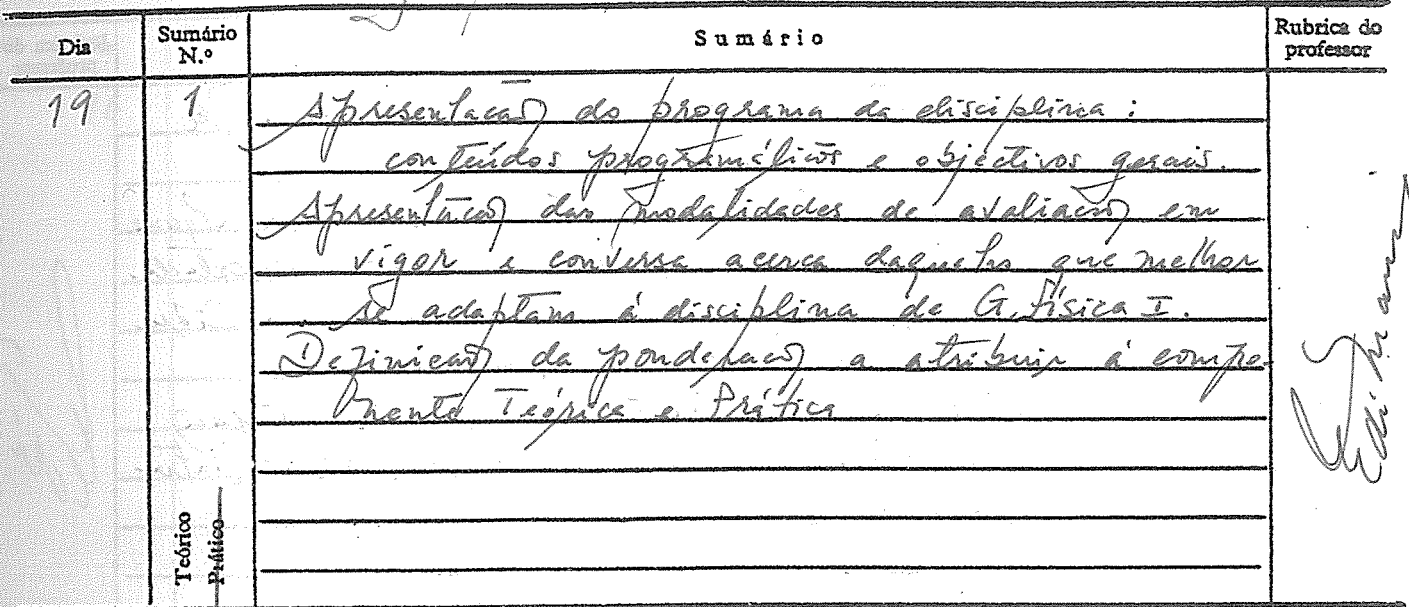 Dia Sumário N.º Sumário Rubrica do professor
19 1 Apresentação do programa da disciplina:
conteúdos programáticos e objectivos gerais.
Apresentação das modalidades de avaliação em
vigor e conversa acerca daquelas que melhor
se adaptam à disciplina de G. Física I.
Definição da ponderação a atribuir à compo-
nente Teórica e Prática
Teórico
Prático